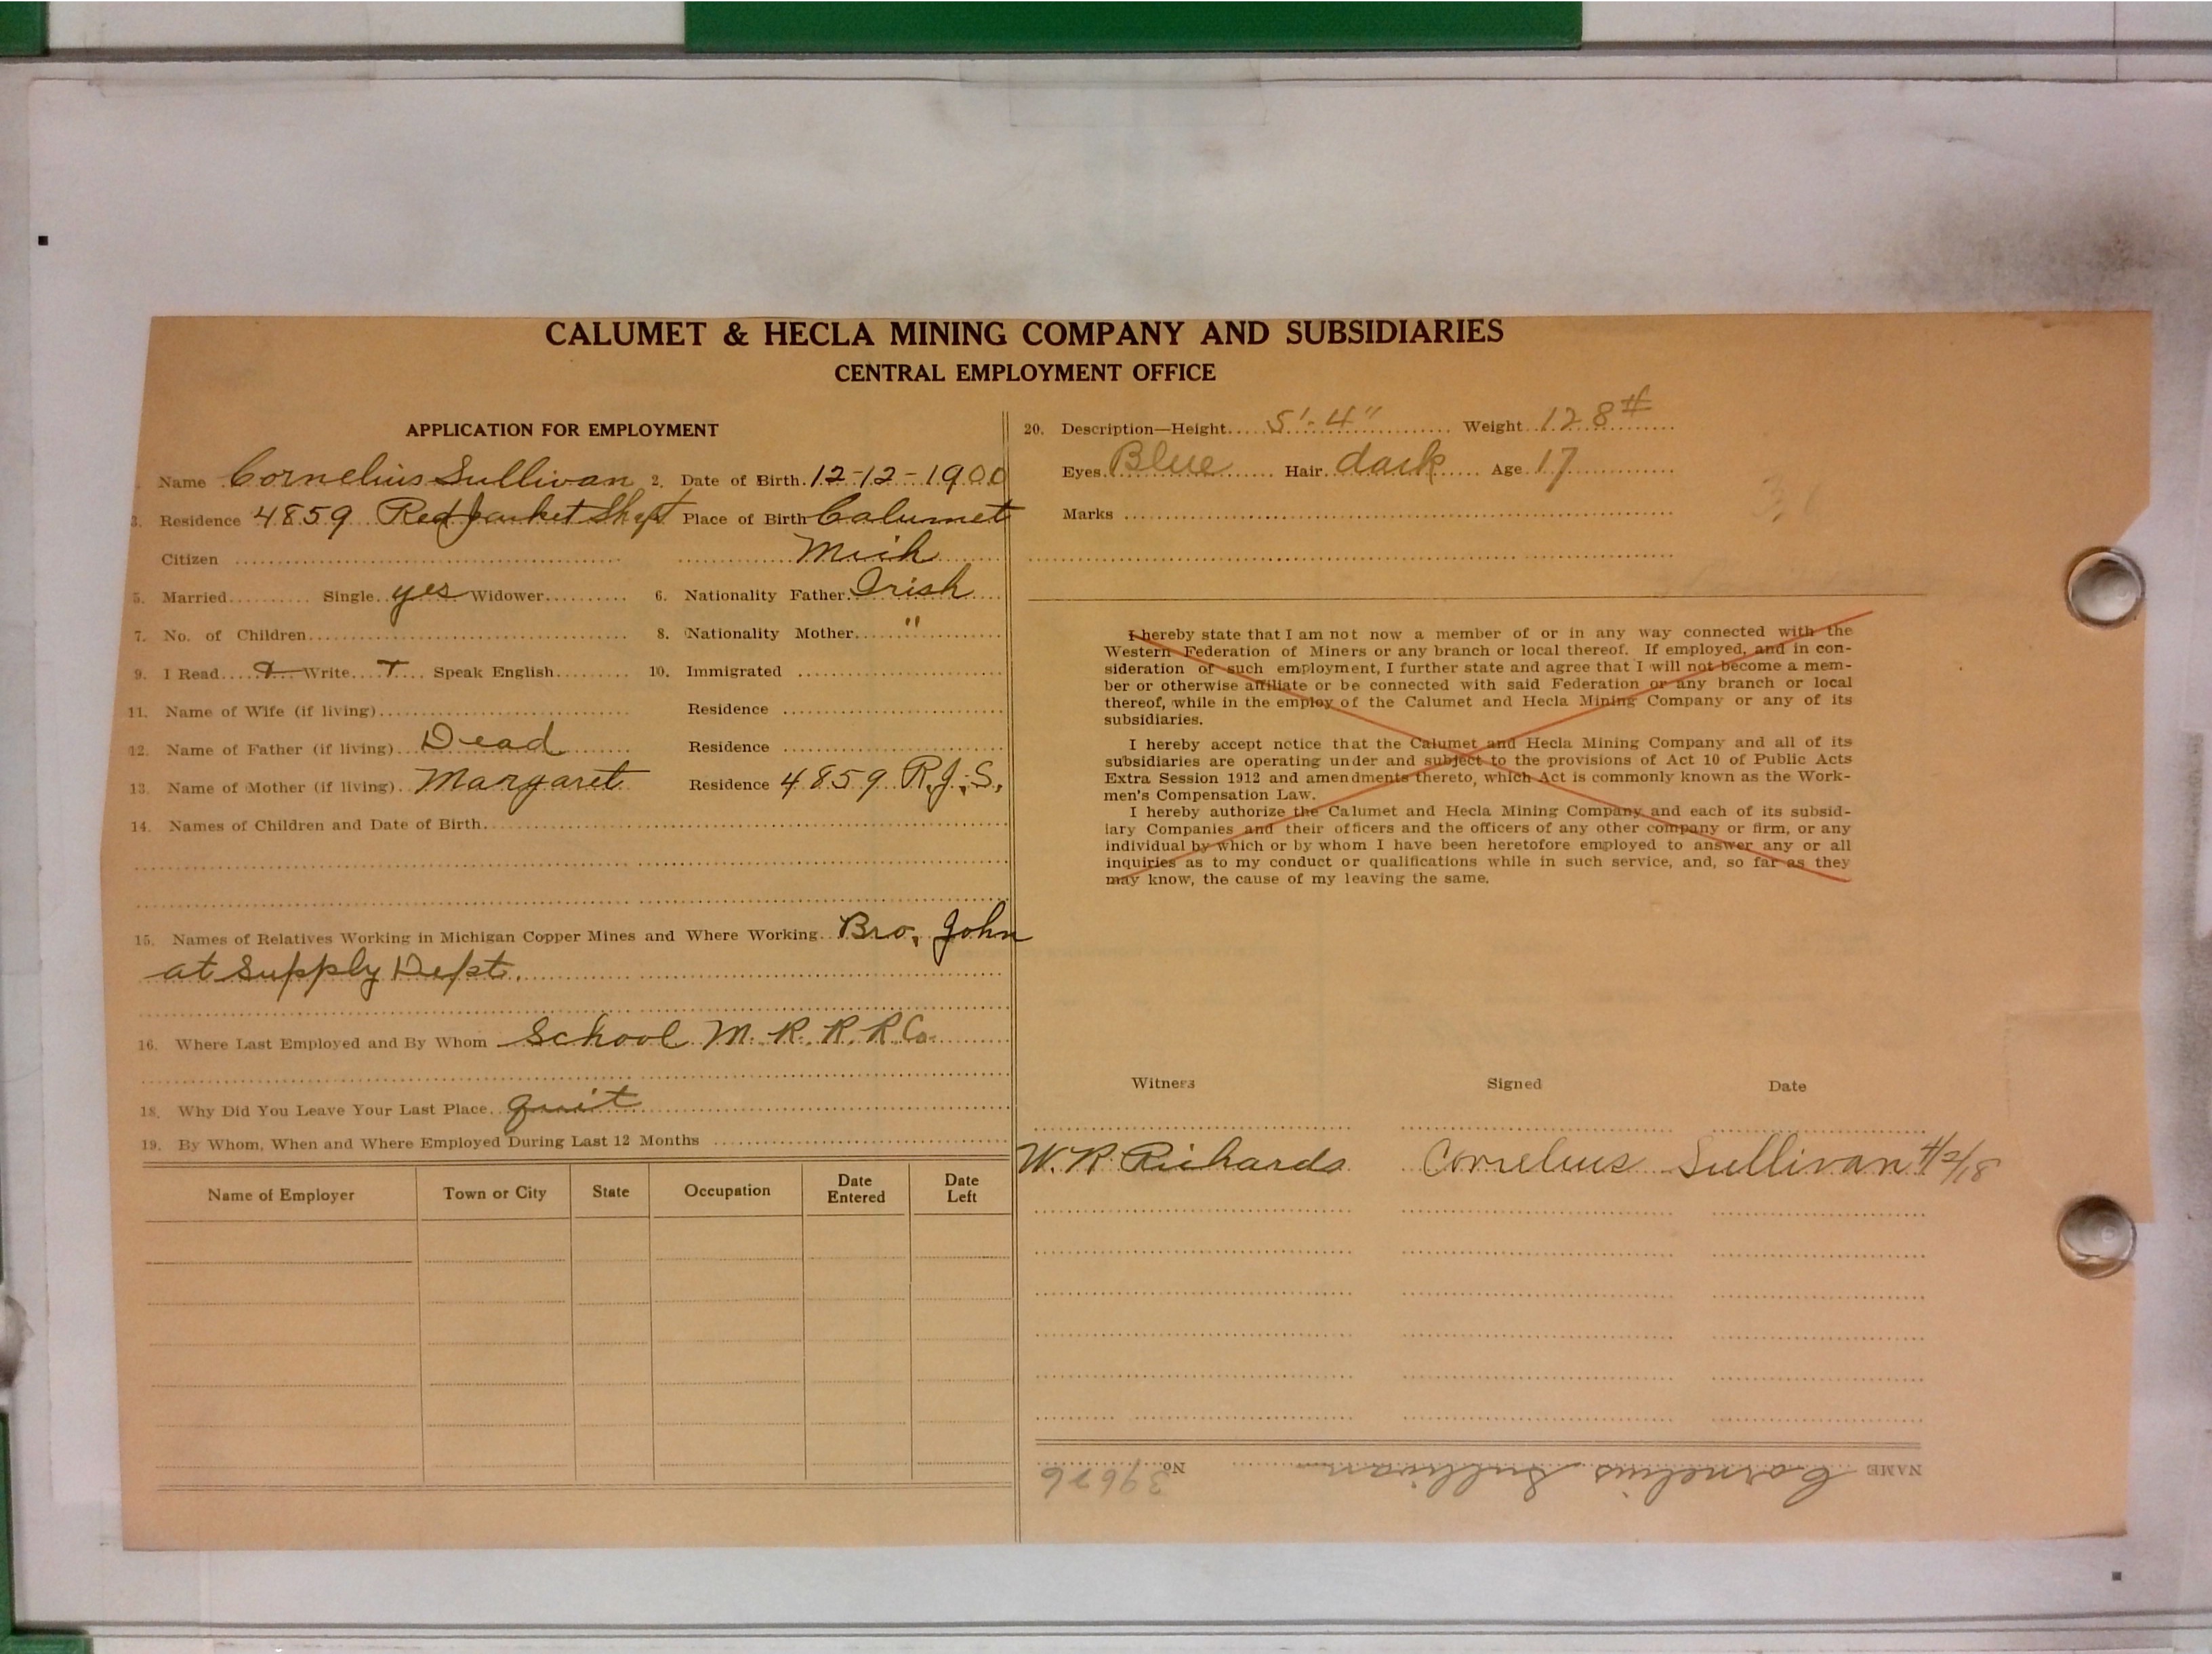 CALUMET & HECLA MINING COMPANY AND SUBSIDIARIES
CENTRAL EMPLOYMENT OFFICE
APPLICATION FOR EMPLOYMENT
Name Cornelius Sullivan 2. Date of Birth 12-12-1900
3. Residence 4859 Red Jacket Shaft Place of Birth Calumet
Citizen Mich
5. Married Single yes Widower 6. Nationality Father Irish
7. No. of Children 8. Nationality Mother "
9. I Read Write Speak English 10. Immigrated
11. Name of Wife (if living) Residence
12. Name of Father (if living) Dead Residence
13. Name of Mother (if living) Margaret Residence 4859 R.J.S.
14. Names of Children and Date of Birth
15. Names of Relatives Working in Michigan Copper Mines and Where Working Bro, John
at Supply Dept.
16. Where Last Employed and By Whom School M. R. R. R Co.
18. Why Did You Leave Your Last Place quit
19. By Whom, When and Where Employed During Last 12 Months
Name of Employer Town or City State Occupation Date Entered Date Left
20. Description—Height 5'-4" Weight 128#
Eyes Blue Hair dark Age 17
Marks
I hereby state that I am not now a member of or in any way connected with the
Western Federation of Miners or any branch or local thereof. If employed, and in con-
sideration of such employment, I further state and agree that I will not become a mem-
ber or otherwise affiliate or be connected with said Federation or any branch or local
thereof, while in the employ of the Calumet and Hecla Mining Company or any of its
subsidiaries.
I hereby accept notice that the Calumet and Hecla Mining Company and all of its
subsidiaries are operating under and subject to the provisions of Act 10 of Public Acts
Extra Session 1912 and amendments thereto, which Act is commonly known as the Work-
men's Compensation Law.
I hereby authorize the Calumet and Hecla Mining Company and each of its subsid-
iary Companies and their officers and the officers of any other company or firm, or any
individual by which or by whom I have been heretofore employed to answer any or all
inquiries as to my conduct or qualifications while in such service, and, so far as they
may know, the cause of my leaving the same.
Witness Signed Date
W. R. Richards Cornelius Sullivan 4/2/18
NAME Cornelius Sullivan No. 39676